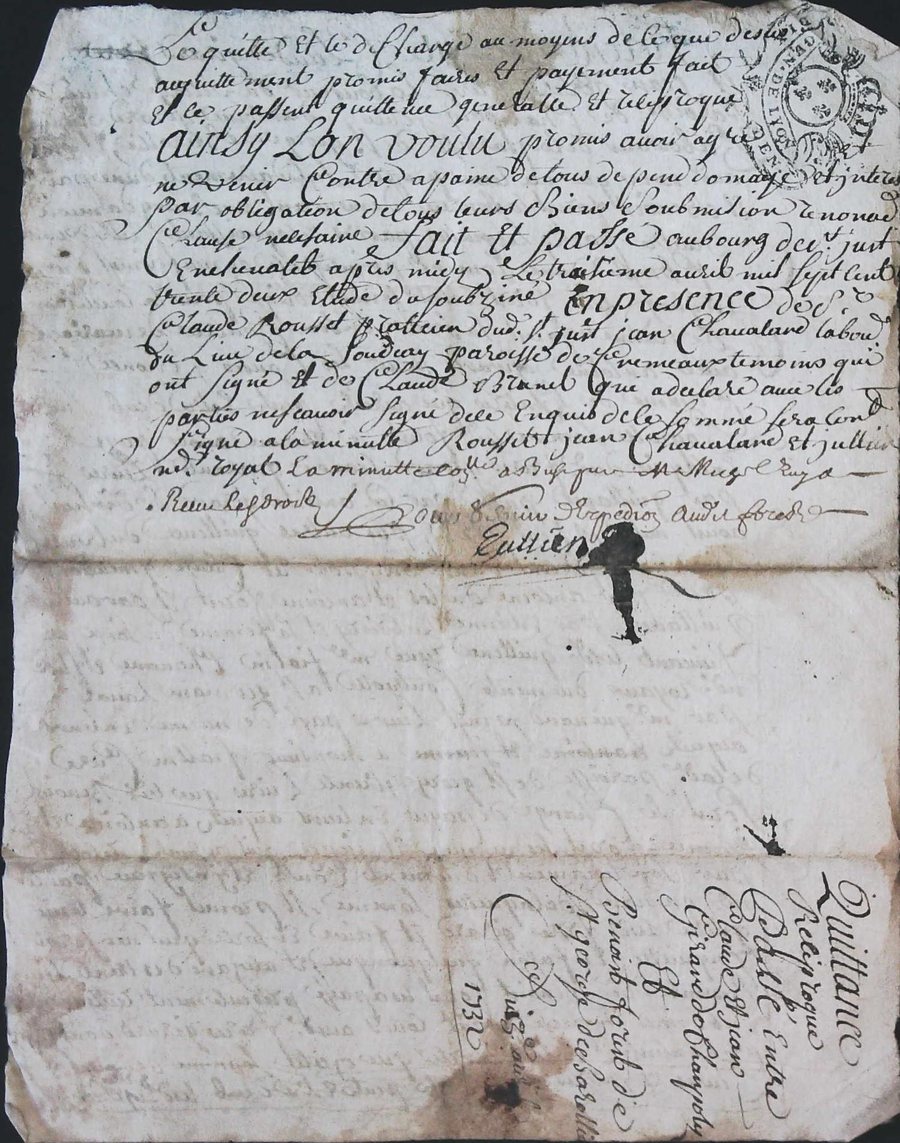 Le quitte Et le decharge au moyens de ce que dessus
acquittement promis faires Et payement fait
Et se passent quittence generalle Et reciproque
ainsy Lon voulu promis avoir agre Et
ne venir Contre a paine de tous depend domage Et interes
par obligation de tous leurs Biens Soubmision renonad
Clause necesaire fait Et passe au bourg de St just
En chevalet apres midy Le traisieme avril mil sept cent
trente deux Etude du soubziné En presence de Sr
Claude Rousset praticien dud. St just jean Chavaland labour
du Lieu de la paroisse de Cremeaux temoins qui
ont signé Et de Claude Brunel que a declare avec les
parties ne scavoir signé de ce Enquis de le somme sera cont
signé a la minutte Rousset jean Chavaland Et jullien
nore royal La minutte
Receu les droits Expedion audit forest
Jullien
Quittance
Reciproque
passé Entre
Claude Et jean
Girard de Champoly
Et
Benoit forest de
St george de baroille
ce
1732